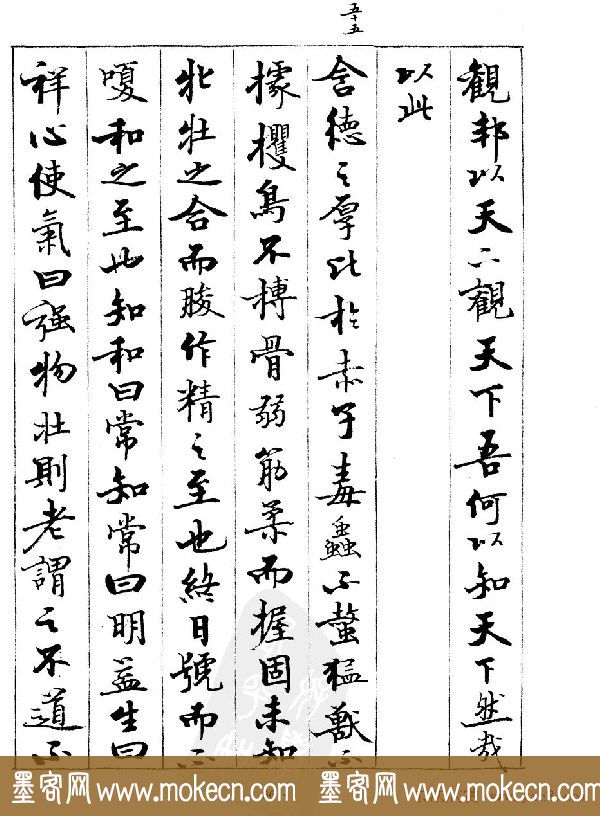 五十五
觀邦以天下觀天下吾何以知天下然哉
以此
含德之厚比於赤子毒蟲不螫猛獸不
據攫鳥不搏骨弱筋柔而握固未知
牝牡之合而朘作精之至也終日號而不
嗄和之至也知和曰常知常曰明益生曰
祥心使氣曰强物壯則老謂之不道不
墨客网 www.mokecn.com 墨客网 www.mokecn.com